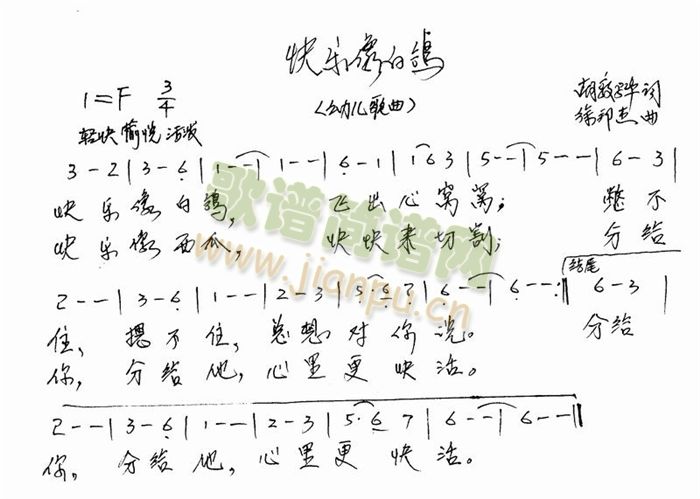 快乐像白鸽
(幼儿歌曲)
1=F 3/4
胡敦华词
徐邦杰曲
轻快 愉悦 活泼
3 - 2 | 3 - 6 | 1 - - | 1 - - | 6 - 1 | 1 6 3 | 5 - - | 5 - - - | 6 - 3 |
快乐像白鸽, 飞出心窝窝; 憋不
快乐像西瓜, 快快来切割; 分给
2 - - | 3 - 6 | 1 - - | 2 - 3 | 5 6 7 | 6 - - | 6 - - :‖ 结尾 6 - 3 |
住, 摁不住, 总想对你说。 分给
你, 分给他, 心里更快活。
2 - - | 3 - 6 | 1 - - | 2 - 3 | 5 · 6 7 | 6 - - | 6 - - ‖
你, 分给他, 心里更快活。
歌谱简谱网
www.jianpu.cn